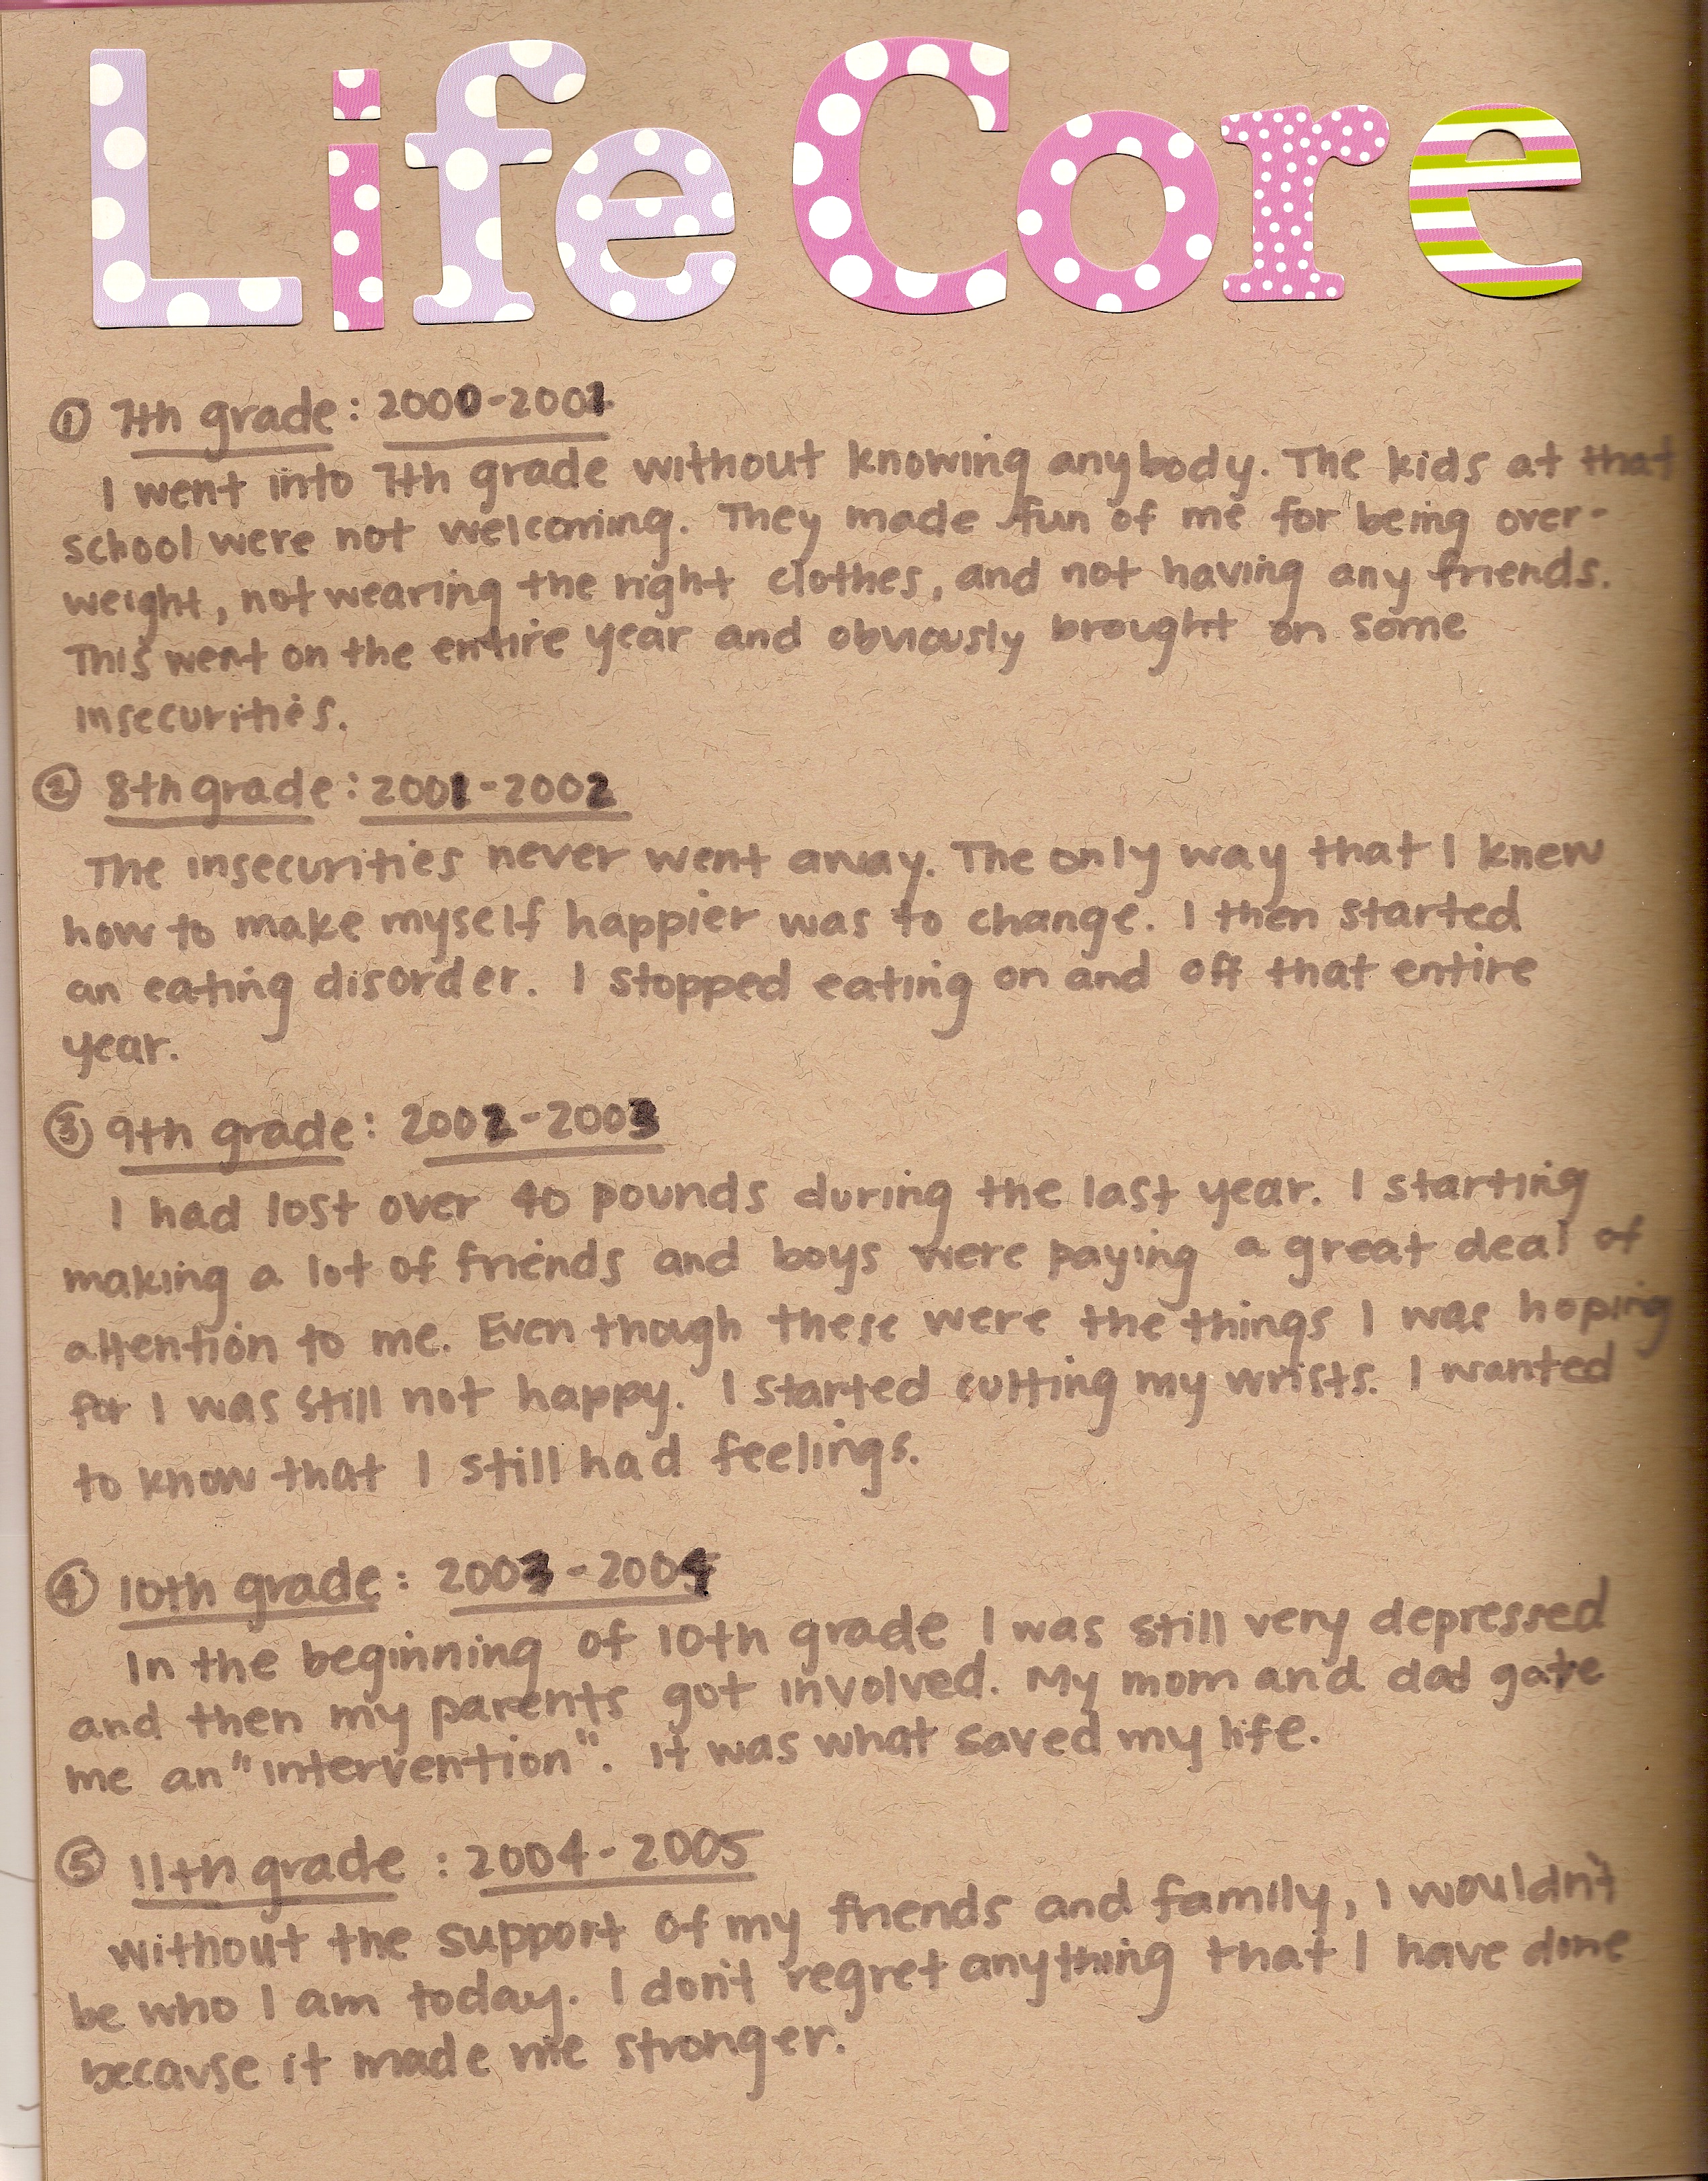 Life Core
① 7th grade: 2000-2001
I went into 7th grade without knowing anybody. The kids at that
school were not welcoming. They made fun of me for being over-
weight, not wearing the right clothes, and not having any friends.
This went on the entire year and obviously brought on some
insecurities.
② 8th grade: 2001-2002
The insecurities never went away. The only way that I knew
how to make myself happier was to change. I then started
an eating disorder. I stopped eating on and off that entire
year.
③ 9th grade: 2002-2003
I had lost over 40 pounds during the last year. I starting
making a lot of friends and boys were paying a great deal of
attention to me. Even though these were the things I was hoping
for I was still not happy. I started cutting my wrists. I wanted
to know that I still had feelings.
④ 10th grade: 2003-2004
In the beginning of 10th grade I was still very depressed
and then my parents got involved. My mom and dad gave
me an "intervention". It was what saved my life.
⑤ 11th grade: 2004-2005
without the support of my friends and family, I wouldn't
be who I am today. I don't regret anything that I have done
because it made me stronger.